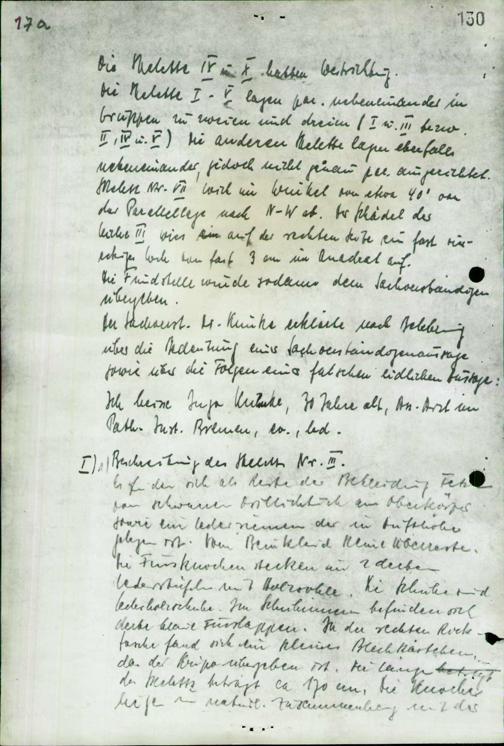 17a
130
Die Skelette IV u. V hatten Westrichtung.
Die Skelette I - V lagen par. nebeneinander in
Gruppen zu zweien und dreien (I u. III bezw.
II, IV u. V) Die anderen Skelette lagen ebenfalls
nebeneinander, jedoch nicht genau par. ausgerichtet.
Skelett Nr. VII wich im Winkel von etwa 40° von
der Parallellage nach N-W ab. Der Schädel des
III wies auf der rechten Seite ein fast ein-
Loch von fast 3 cm im Quadrat auf.
Die Fundstelle wurde sodann dem Sachverständigen
übergeben.
Der Sachverst. Dr. erklärte nach Belehrung
über die Bedeutung einer Sachverständigenaussage
sowie über die Folgen einer falschen eidlichen Aussage:
Ich heisse Ingo, 30 Jahre alt, Ass. Arzt im
Path. Inst. Bremen, ev., led.
I) a) Beschreibung des Skeletts Nr. III.
Es finden sich als Reste der Bekleidung
von schwarzem Drillichtuch am Oberkörper
sowie ein Lederriemen der in Hüfthöhe
gelegen ist. Vom Beinkleid keine Überreste.
Die Fussknochen stecken in 2 derben
Lederstiefeln mit Holzsohle. Die Schuhe sind
Lederholzschuhe. Im Schuhinnern befinden sich
derbe blaue Fusslappen. In der rechten Rock-
tasche fand sich ein kleines Blechkästchen,
das der Kripo übergeben ist. Die Länge
des Skeletts beträgt ca 170 cm. Die Knochen
in natürl. Zusammenhang mit der